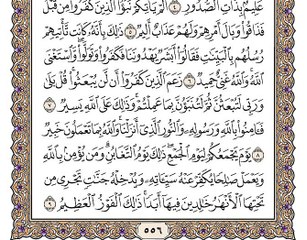 عَلِيمٌۢ بِذَاتِ ٱلصُّدُورِ ٤ أَلَمۡ يَأۡتِكُمۡ نَبَؤُاْ ٱلَّذِينَ كَفَرُواْ مِن قَبۡلُ
فَذَاقُواْ وَبَالَ أَمۡرِهِمۡ وَلَهُمۡ عَذَابٌ أَلِيمٌ ٥ ذَٰلِكَ بِأَنَّهُۥ كَانَت تَّأۡتِيهِمۡ
رُسُلُهُم بِٱلۡبَيِّنَٰتِ فَقَالُوٓاْ أَبَشَرٌ يَهۡدُونَنَا فَكَفَرُواْ وَتَوَلَّواْۖ وَّٱسۡتَغۡنَى
ٱللَّهُۚ وَٱللَّهُ غَنِيٌّ حَمِيدٌ ٦ زَعَمَ ٱلَّذِينَ كَفَرُوٓاْ أَن لَّن يُبۡعَثُواْۚ قُلۡ بَلَىٰ
وَرَبِّي لَتُبۡعَثُنَّ ثُمَّ لَتُنَبَّؤُنَّ بِمَا عَمِلۡتُمۡۚ وَذَٰلِكَ عَلَى ٱللَّهِ يَسِيرٌ ٧
فَـَٔامِنُواْ بِٱللَّهِ وَرَسُولِهِۦ وَٱلنُّورِ ٱلَّذِيٓ أَنزَلۡنَاۚ وَٱللَّهُ بِمَا تَعۡمَلُونَ خَبِيرٌ
٨ يَوۡمَ يَجۡمَعُكُمۡ لِيَوۡمِ ٱلۡجَمۡعِۖ ذَٰلِكَ يَوۡمُ ٱلتَّغَابُنِۗ وَمَن يُؤۡمِنۢ بِٱللَّهِ
وَيَعۡمَلۡ صَٰلِحٗا يُكَفِّرۡ عَنۡهُ سَيِّـَٔاتِهِۦ وَيُدۡخِلۡهُ جَنَّٰتٖ تَجۡرِي مِن
تَحۡتِهَا ٱلۡأَنۡهَٰرُ خَٰلِدِينَ فِيهَآ أَبَدٗاۚ ذَٰلِكَ ٱلۡفَوۡزُ ٱلۡعَظِيمُ ٩
٥٥٦